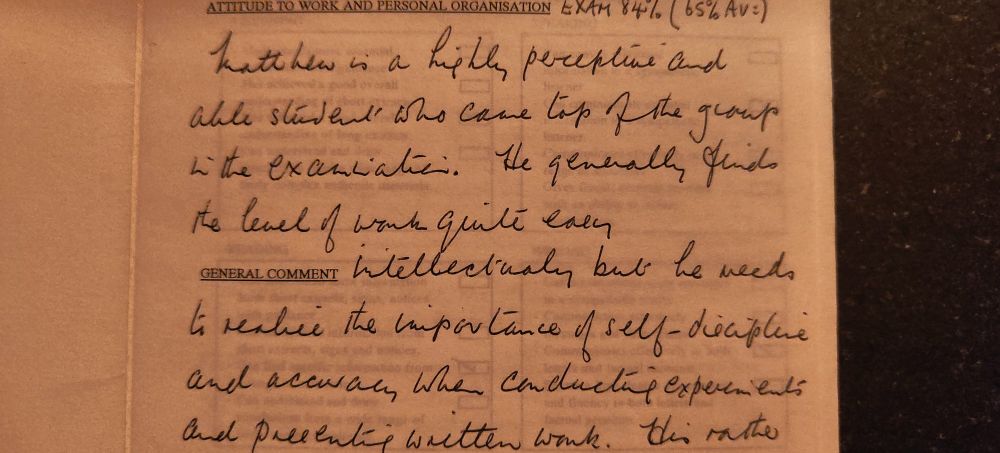 ATTITUDE TO WORK AND PERSONAL ORGANISATION EXAM 84% (65% AV:)
Matthew is a highly perceptive and
able student who came top of the group
in the examination. He generally finds
the level of work quite easy
GENERAL COMMENT intellectualy but he needs
to realise the importance of self-discipline
and accuracy when conducting experiments
and presenting written work. His rather